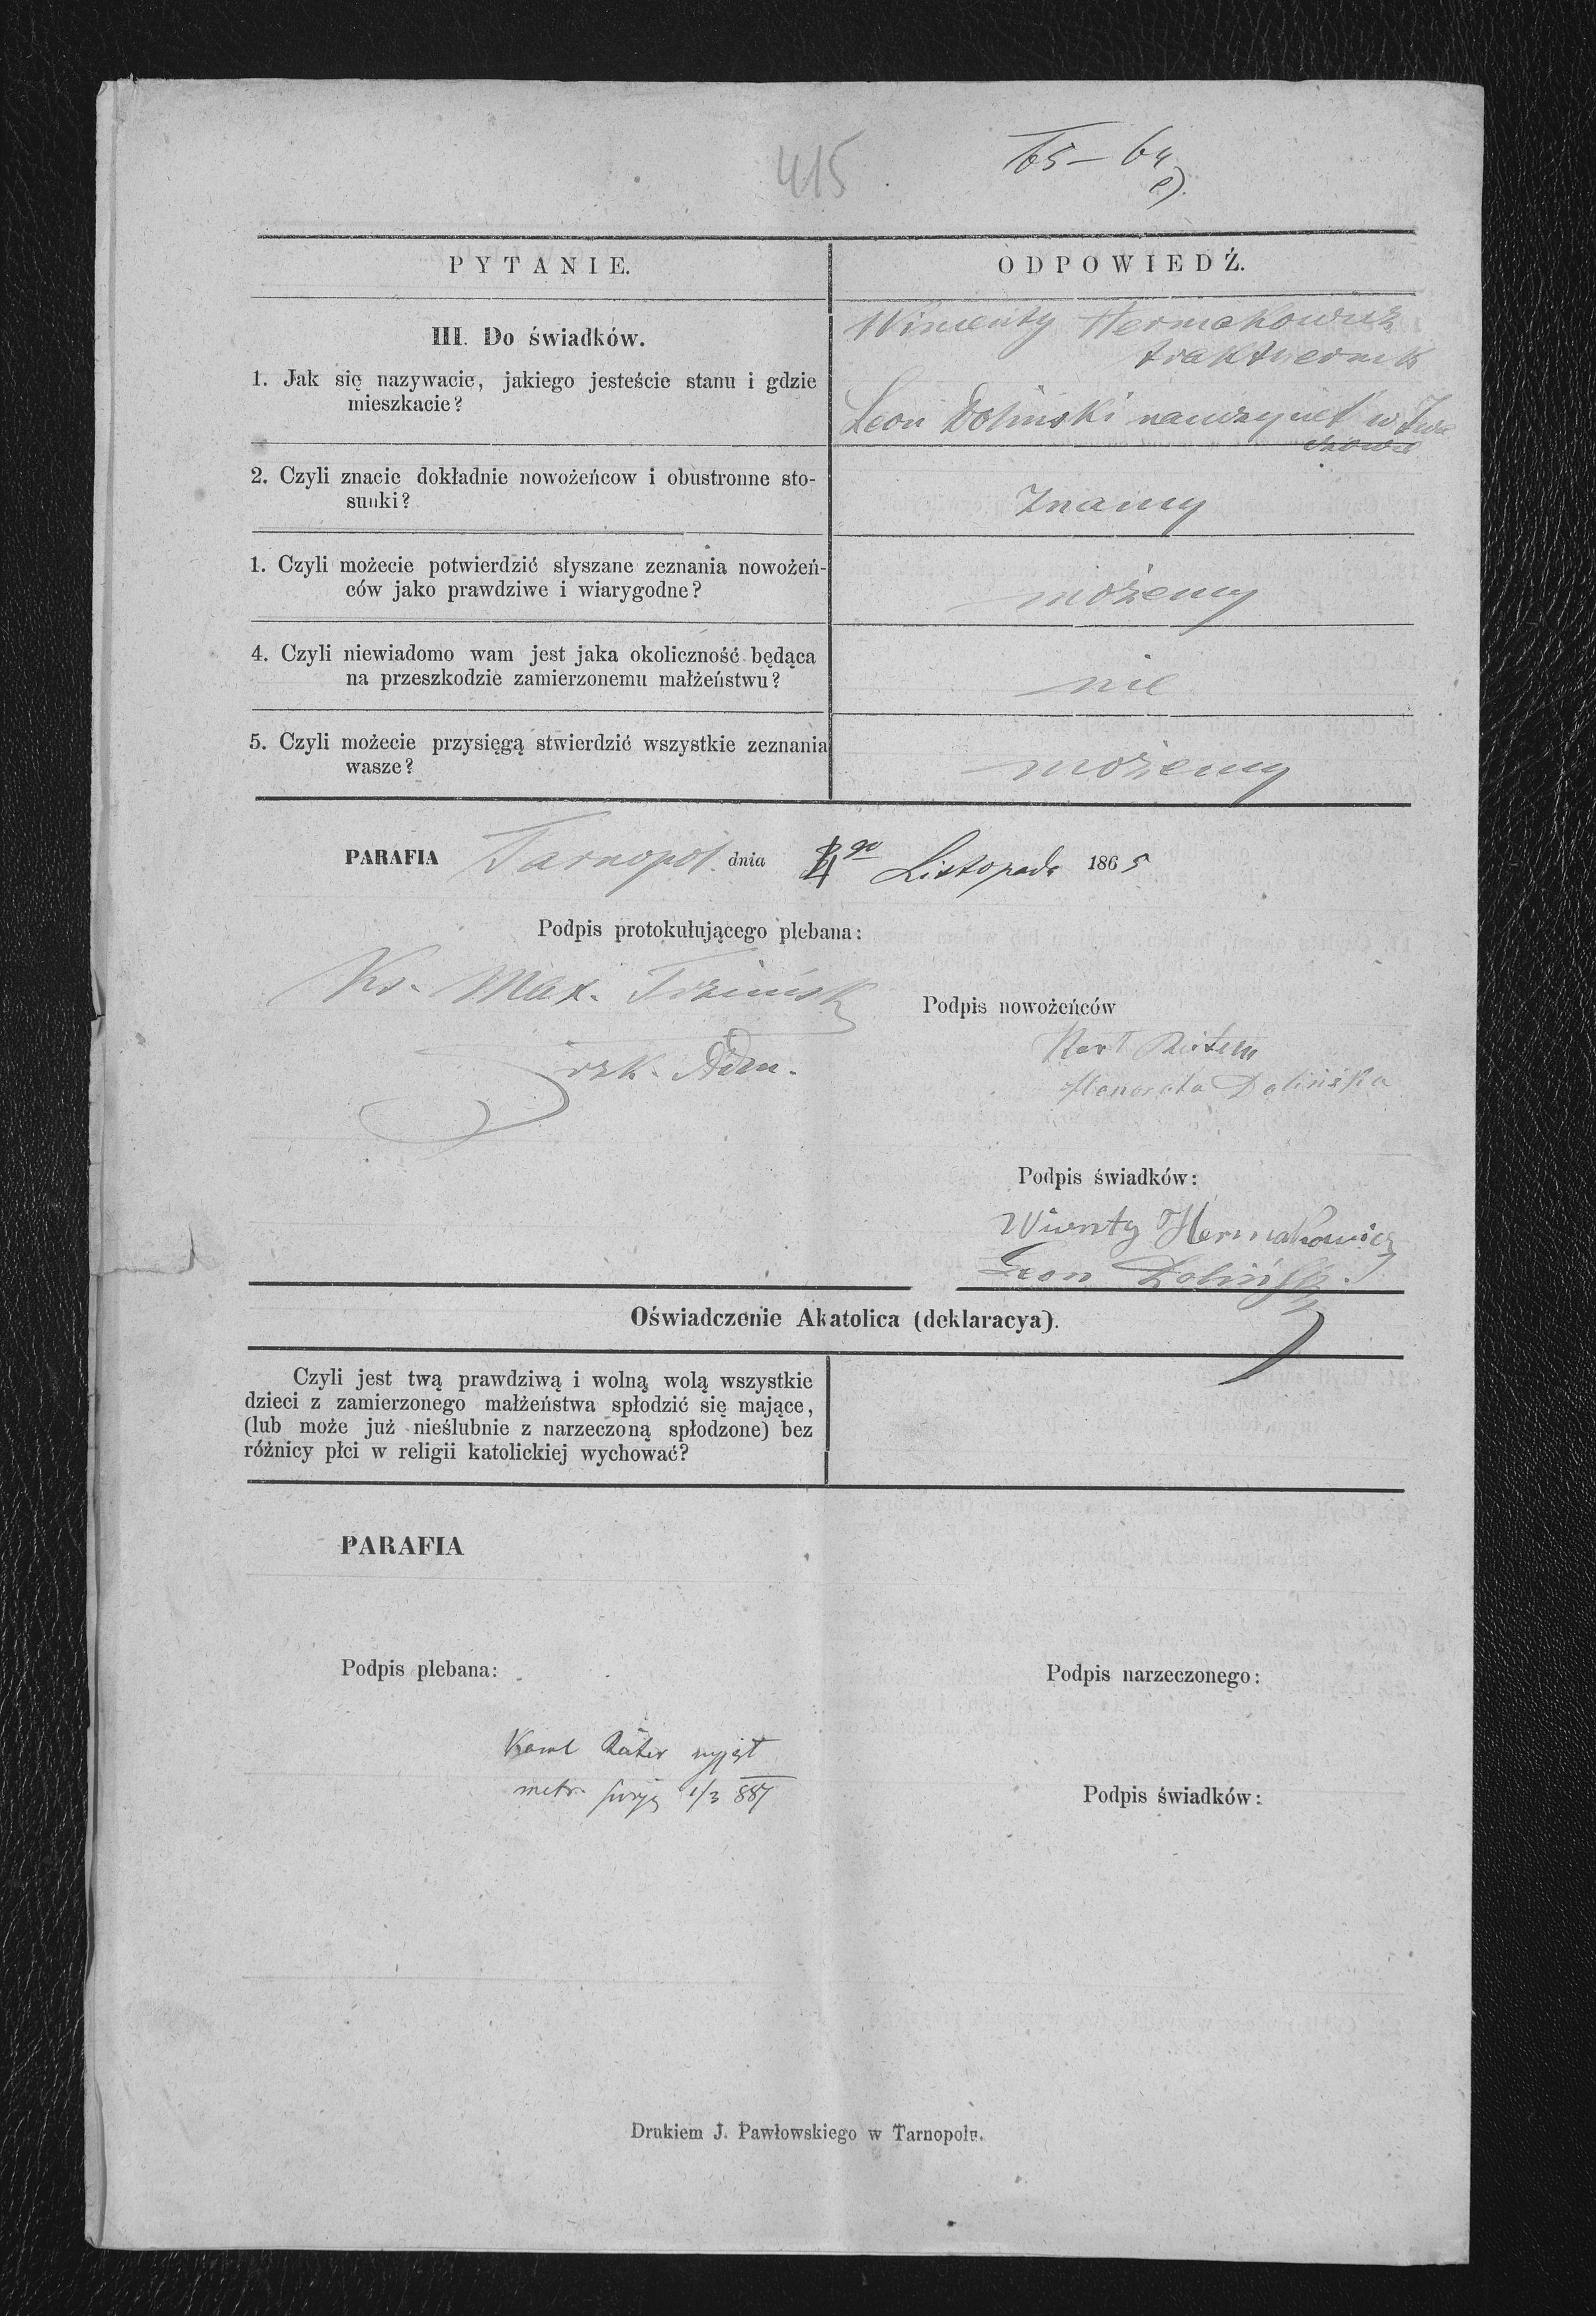 415
65 – 64
e).
PYTANIE.
ODPOWIEDŹ.
III. Do świadków.
1. Jak się nazywacie, jakiego jesteście stanu i gdzie
mieszkacie?
Wincenty Hermakowicz
traktiernik
Leon Doliński nauczyciel w
2. Czyli znacie dokładnie nowożeńcow i obustronne sto-
sunki?
Znamy
1. Czyli możecie potwierdzić słyszane zeznania nowożeń-
ców jako prawdziwe i wiarygodne?
możemy
4. Czyli niewiadomo wam jest jaka okoliczność będąca
na przeszkodzie zamierzonemu małżeństwu?
nie
5. Czyli możecie przysięgą stwierdzić wszystkie zeznania
wasze?
możemy
PARAFIA Tarnopol. dnia 4go Listopada 1865
Podpis protokułującego plebana:
Ks. Max.
Adm.
Podpis nowożeńców
Karl
Honorata Dolińska
Podpis świadków:
Wicenty Hermakowicz
Leon Doliński
Oświadczenie Akatolica (deklaracya).
Czyli jest twą prawdziwą i wolną wolą wszystkie
dzieci z zamierzonego małżeństwa spłodzić się mające,
(lub może już nieślubnie z narzeczoną spłodzone) bez
różnicy płci w religii katolickiej wychować?
PARAFIA
Podpis plebana:
Podpis narzeczonego:
Karol wyjął
metr. swoję 1/3 887
Podpis świadków:
Drukiem J. Pawłowskiego w Tarnopolu.